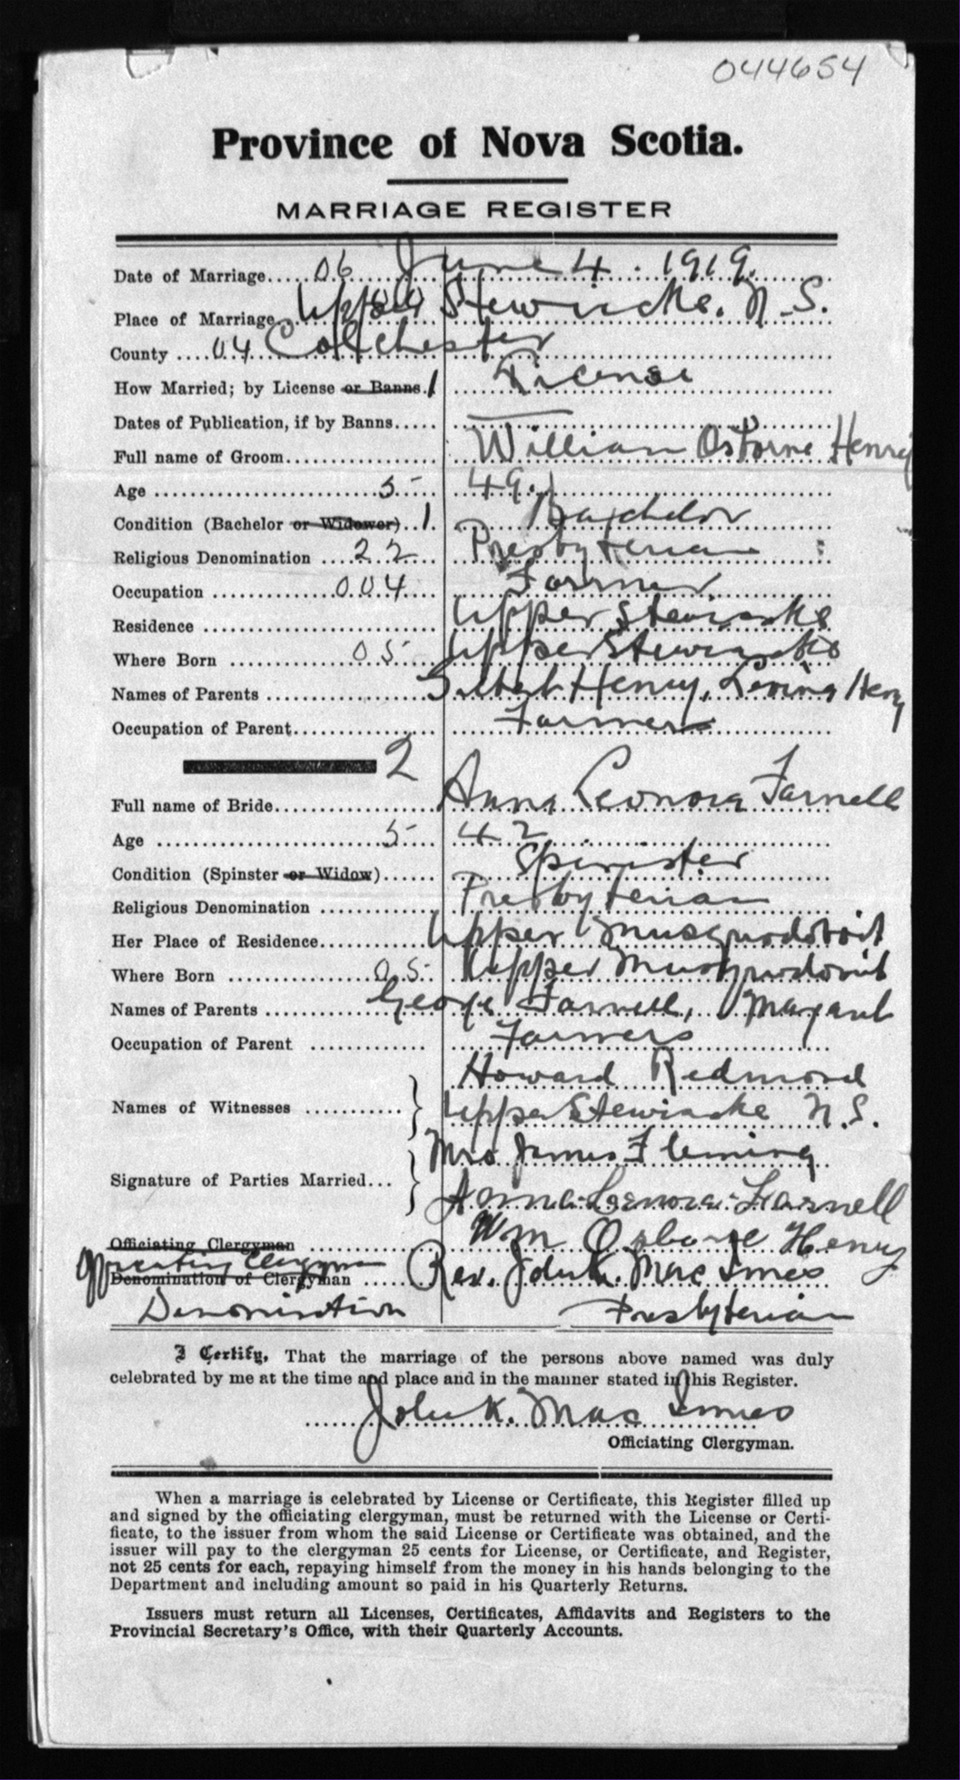 044654
Province of Nova Scotia.
MARRIAGE REGISTER
Date of Marriage.... 06 June 4. 1919.
Place of Marriage Upper Stewiacke. N.S.
County .... 04 Colchester
How Married; by License or Banns. 1 License
Dates of Publication, if by Banns.....
Full name of Groom.... William Osborne Henry
Age .... 5 49.
Condition (Bachelor or Widower).. 1. Bachelor
Religious Denomination .... 22 Presbyterian
Occupation .... 004 Farmer
Residence .... Upper Stewiacke
Where Born .... 05 Upper Stewiacke
Names of Parents .... Gilbert Henry, Lavina Henry
Occupation of Parent.... Farmers
2
Full name of Bride.... Anna Leonora Farnell
Age .... 5 42
Condition (Spinster or Widow)...... Spinister
Religious Denomination .... Presbyterian
Her Place of Residence.... Upper Musquodoboit
Where Born .... 05 Upper Musquodoboit
Names of Parents .... George Farnell, Margaret
Occupation of Parent .... Farmers
Howard Redmond
Names of Witnesses .... Upper Stewiacke N.S.
Mrs James Fleming
Signature of Parties Married... Anna Lenora Farnell
Officiating Clergyman .... Wm Osborne Henry
Officiating Clergyman
Denomination of Clergyman .... Rev. John K. MacInnes
Denomination Presbyterian
I Certify, That the marriage of the persons above named was duly
celebrated by me at the time and place and in the manner stated in this Register.
John K. Mac Innes
Officiating Clergyman.
When a marriage is celebrated by License or Certificate, this Register filled up
and signed by the officiating clergyman, must be returned with the License or Certi-
ficate, to the issuer from whom the said License or Certificate was obtained, and the
issuer will pay to the clergyman 25 cents for License, or Certificate, and Register,
not 25 cents for each, repaying himself from the money in his hands belonging to the
Department and including amount so paid in his Quarterly Returns.
Issuers must return all Licenses, Certificates, Affidavits and Registers to the
Provincial Secretary's Office, with their Quarterly Accounts.